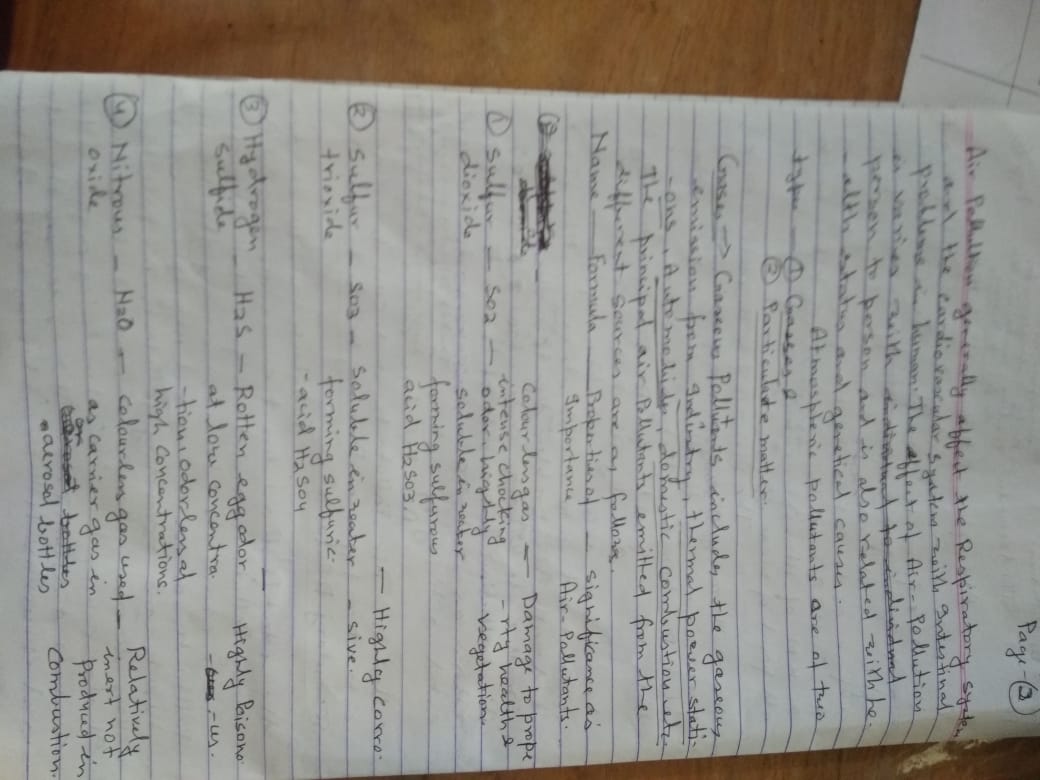 Page-②
Air Pollution generally affect the Respiratory system
and the cardiovascular system with Intestinal
problems in human. The effect of Air-Pollution
is varies with individual to individual
person to person and is also related with he-
-alth status and genetical causes.
Atmospheric pollutants are of two
type — ① Gases &
② Particulate matter.
Gases → Gaseous Pollutents includes the gaseous
emission from Industry, thermal power stati-
-ons, Automobile, domestic combustion etc.
The principal air Pollutants emitted from the
different sources are as follows.
Name — Formula — Properties of — significance as
Importance Air-Pollutants.
① Sulfur — SO2 — Colourless gas — Damage to prope
dioxide intense chocking -rty health &
odor highly vegetation
soluble in water
forming sulfurous
acid H2SO3
② Sulfur — SO3 — Soluble in water — Highly corro-
trioxide forming sulfuric -sive.
-acid H2SO4
③ Hydrogen — H2S — Rotten egg odor Highly Poisono
sulfide at low concentra -us.
-tion, odorless at
high concentrations.
④ Nitrous — N2O — Colourless gas used — Relatively
oxide as carrier gas in inert not
aerosol bottles produced in
combustion.